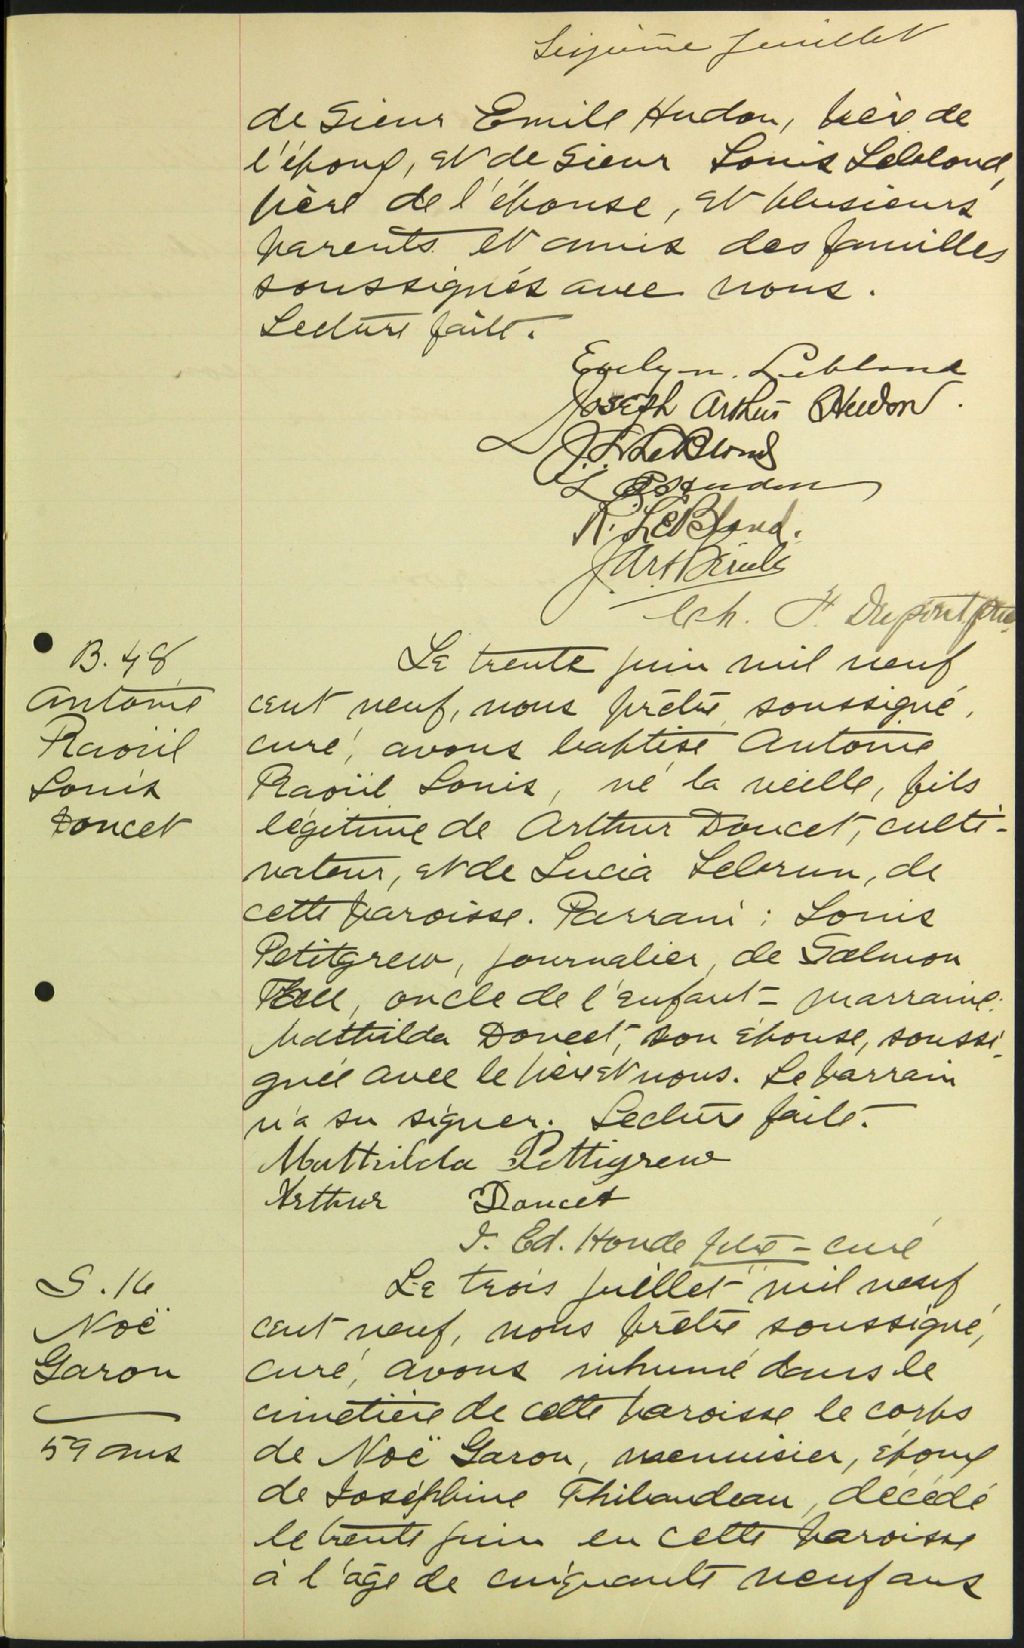 Seizième feuillet
de Sieur Emile Hudon, père de
l'époux, et de Sieur Louis Leblond,
père de l'épouse, et plusieurs
parents et amis des familles
soussignés avec nous.
Lecture faite.
Evelyn Leblond
Joseph Arthur Hudon.
LeBlond
Hudon
R. LeBlond.
J. Art
Ch. F. Dupont ptre
B. 48
Antoine
Raoül
Louis
Doucet
Le trente juin mil neuf
cent neuf, nous prêtre soussigné,
curé, avons baptisé Antoine
Raoül Louis, né la veille, fils
légitime de Arthur Doucet, culti-
vateur, et de Lucia Lebrun, de
cette paroisse. Parrain : Louis
Petitgrew, journalier, de Salmon
Fall, oncle de l'enfant - marraine:
Mathilda Doucet, son épouse, soussi-
gnée avec le père et nous. Le parrain
n'a su signer. Lecture faite.
Matthilda Pettigrew
Arthur Doucet
J. Ed. Houde ptre - curé
S. 16
Noë
Garon
59 ans
Le trois juillet mil neuf
cent neuf, nous prêtre soussigné,
curé, avons inhumé dans le
cimetière de cette paroisse le corps
de Noë Garon, menuisier, époux
de Joséphine Thibaudeau, décédé
le trente juin en cette paroisse
à l'âge de cinquante neuf ans